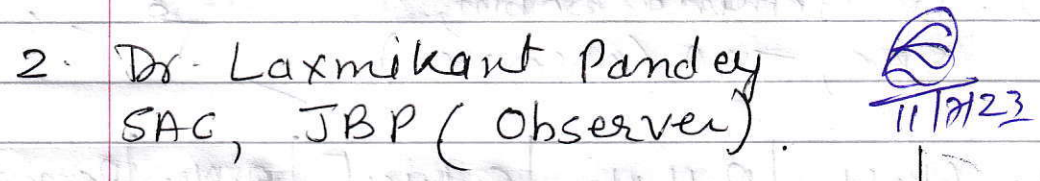 2. Dr. Laxmikant Pandey
SAC, JBP (Observer).